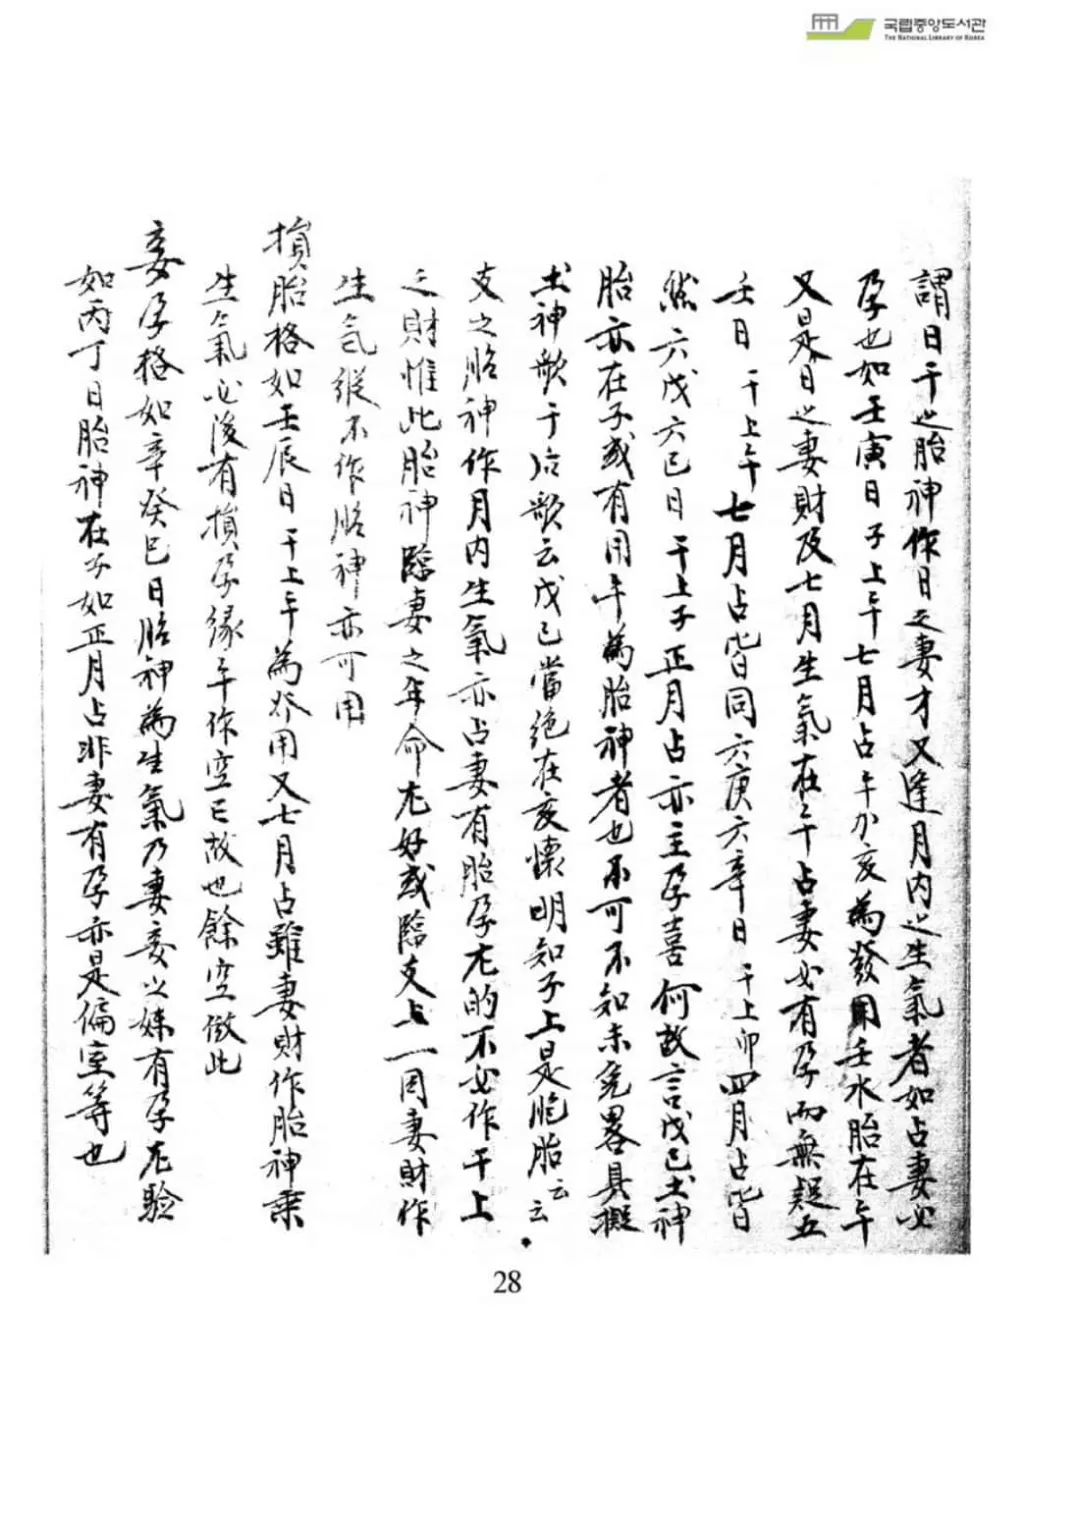 국립중앙도서관
THE NATIONAL LIBRARY OF KOREA
謂日干之胎神作日之妻才又逢月內之生氣者如占妻必
孕也如壬寅日子上午七月占午加亥為發用壬水胎在午
又是日之妻財及七月生氣在午占妻必有孕而無疑五
壬日干上午七月占皆同六庚六辛日干上卯四月占皆
然六戊六己日干上子正月占亦主孕喜何故言戊己土神
胎亦在子或有用午為胎神者也不可不知未究畧具擬
土神歌于后歌云戊己當绝在亥懷明知子上是胞胎云云
支之胎神作月內生氣亦占妻有胎孕尤的不必作干上
之財惟此胎神臨妻之年命尤好或臨支上一因妻財作
生气縱不作胎神亦可用
損胎格如壬辰日干上午為發用又七月占雖妻財作胎神乘
生氣必後有損孕緣午作空亡故也餘空倣此
妾孕格如辛癸巳日胎神為生氣乃妻妾之妹有孕尤驗
如丙丁日胎神在子如正月占非妻有孕亦是偏室等也
28